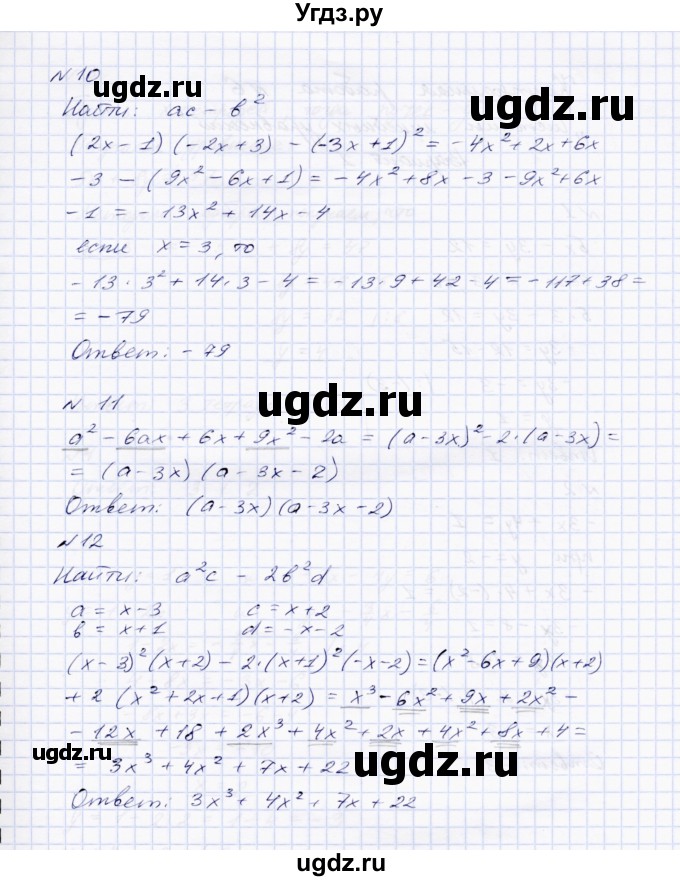 Угдз.ру
N 10
Найти: ac - b²
(2x - 1) (-2x + 3) - (-3x + 1)² = -4x² + 2x + 6x
-3 - (9x² - 6x + 1) = -4x² + 8x - 3 - 9x² + 6x
-1 = -13x² + 14x - 4
если x = 3, то
-13 · 3² + 14 · 3 - 4 = -13 · 9 + 42 - 4 = -117 + 38 =
= -79
Ответ: -79
ugdz.ru
ugdz.ru
N 11
a² - 6ax + 6x + 9x² - 2a = (a - 3x)² - 2 · (a - 3x) =
= (a - 3x) (a - 3x - 2)
Ответ: (a - 3x) (a - 3x - 2)
N 12
Найти: a²c - 2b²d
a = x - 3 c = x + 2
b = x + 1 d = -x - 2
(x - 3)² (x + 2) - 2 · (x + 1)² (-x - 2) = (x² - 6x + 9) (x + 2)
+ 2 (x² + 2x + 1) (x + 2) = x³ - 6x² + 9x + 2x² -
- 12x + 18 + 2x³ + 4x² + 2x + 4x² + 8x + 4 =
= 3x³ + 4x² + 7x + 22
ugdz.ru
ugdz.ru
Ответ: 3x³ + 4x² + 7x + 22
ugdz.ru